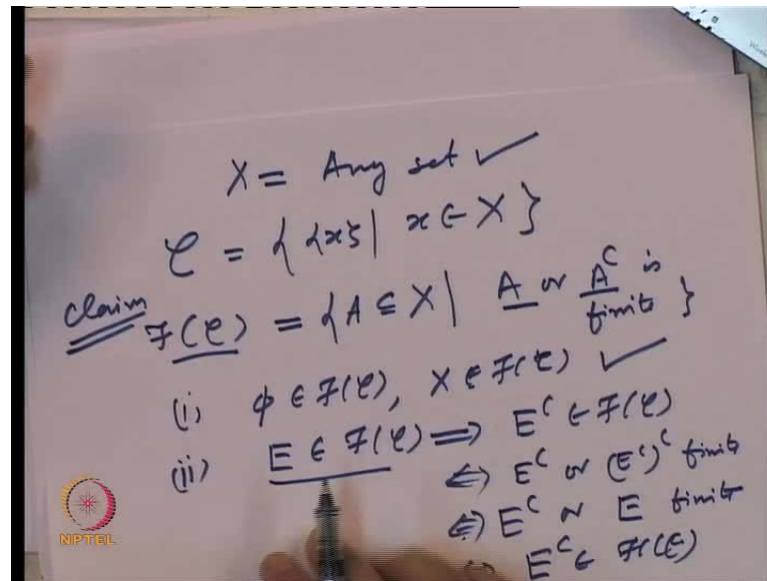 X = Any set ✓
C = { {x} | x ∈ X }
Claim
F(C) = { A ⊆ X | A or A^C is finite }
(i) φ ∈ F(C), X ∈ F(C) ✓
(ii) E ∈ F(C) ⇒ E^C ∈ F(C)
⇔ E^C or (E^C)^C finite
⇔ E^C or E finite
E^C ∈ F(C)
NPTEL